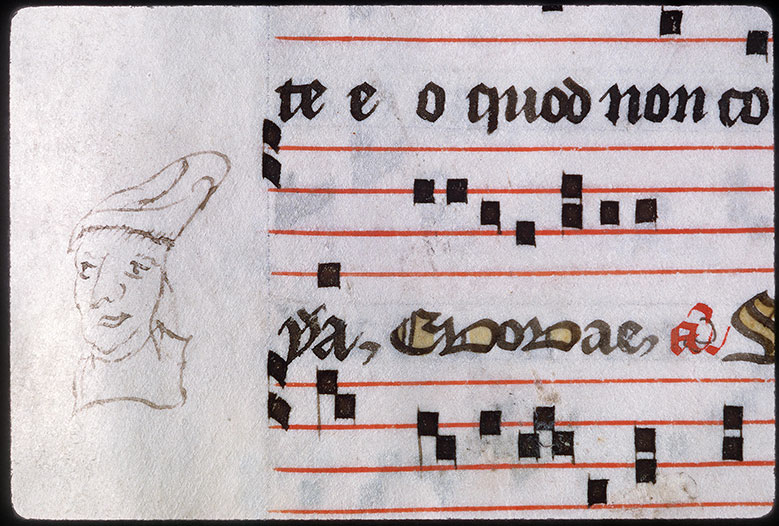 te e o quod non co
ỹa, Euouae, a